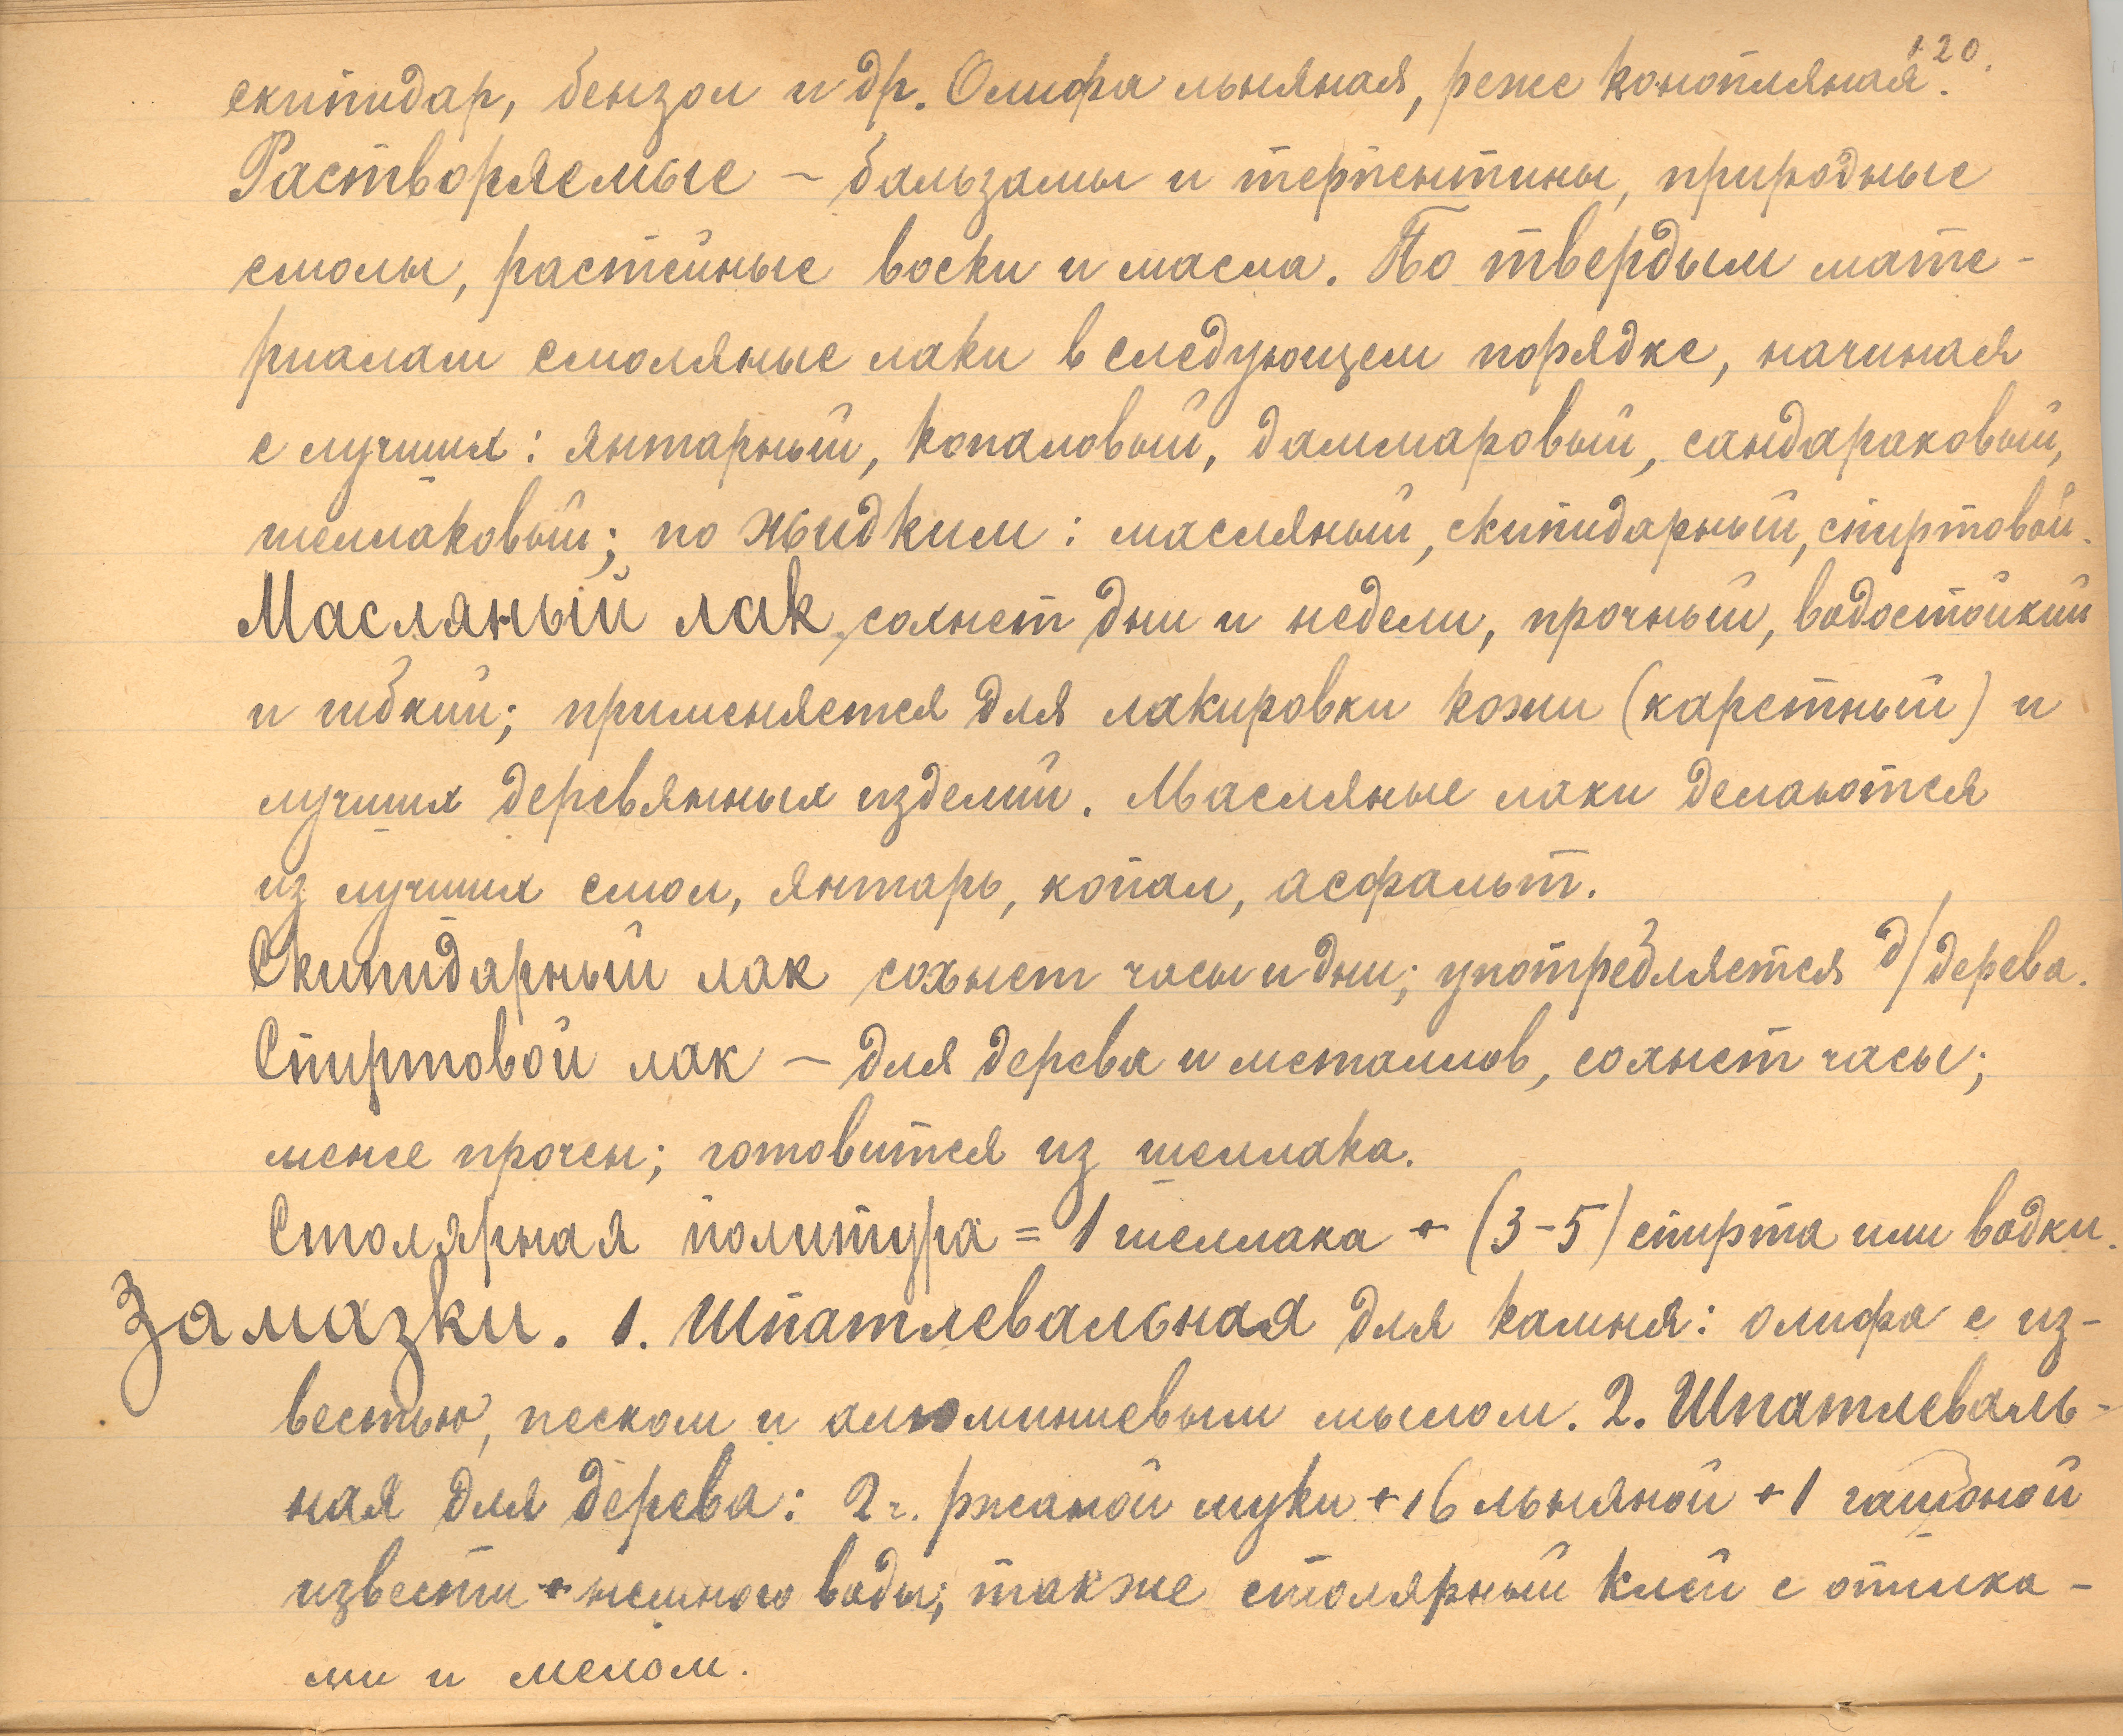 120.
скипидар, бензол и др. Олифа льняная, реже конопляная.
Растворяемые – бальзамы и терпентины, природные
смолы, растейные воски и масла. По твердым мате-
риалам смоляные лаки в следующем порядке, начиная
с лучших: янтарный, копаловый, даммаровый, сандараковый,
шеллаковый; по жидким: масляный, скипидарный, спиртовой.
Масляный лак, сохнет дни и недели, прочный, водостойкий
и гибкий; применяется для лакировки кожи (каретный) и
лучших деревянных изделий. Масляные лаки делаются
из лучших смол, янтарь, копал, асфальт.
Скипидарный лак сохнет часы и дни; употребляется д/дерева.
Спиртовой лак – для дерева и металлов, сохнет часы;
менее прочен; готовится из шеллака.
Столярная политура = 1 шеллака + (3–5) спирта или водки.
Замазки. 1. Шпатлевальная для камня: олифа с из-
вестью, песком и алюминиевым мылом. 2. Шпатлеваль-
ная для дерева: 2 ч. ржаной муки + 16 льняной + 1 гашоной
извести + немного воды; также столярный клей с опилка-
ми и мелом.